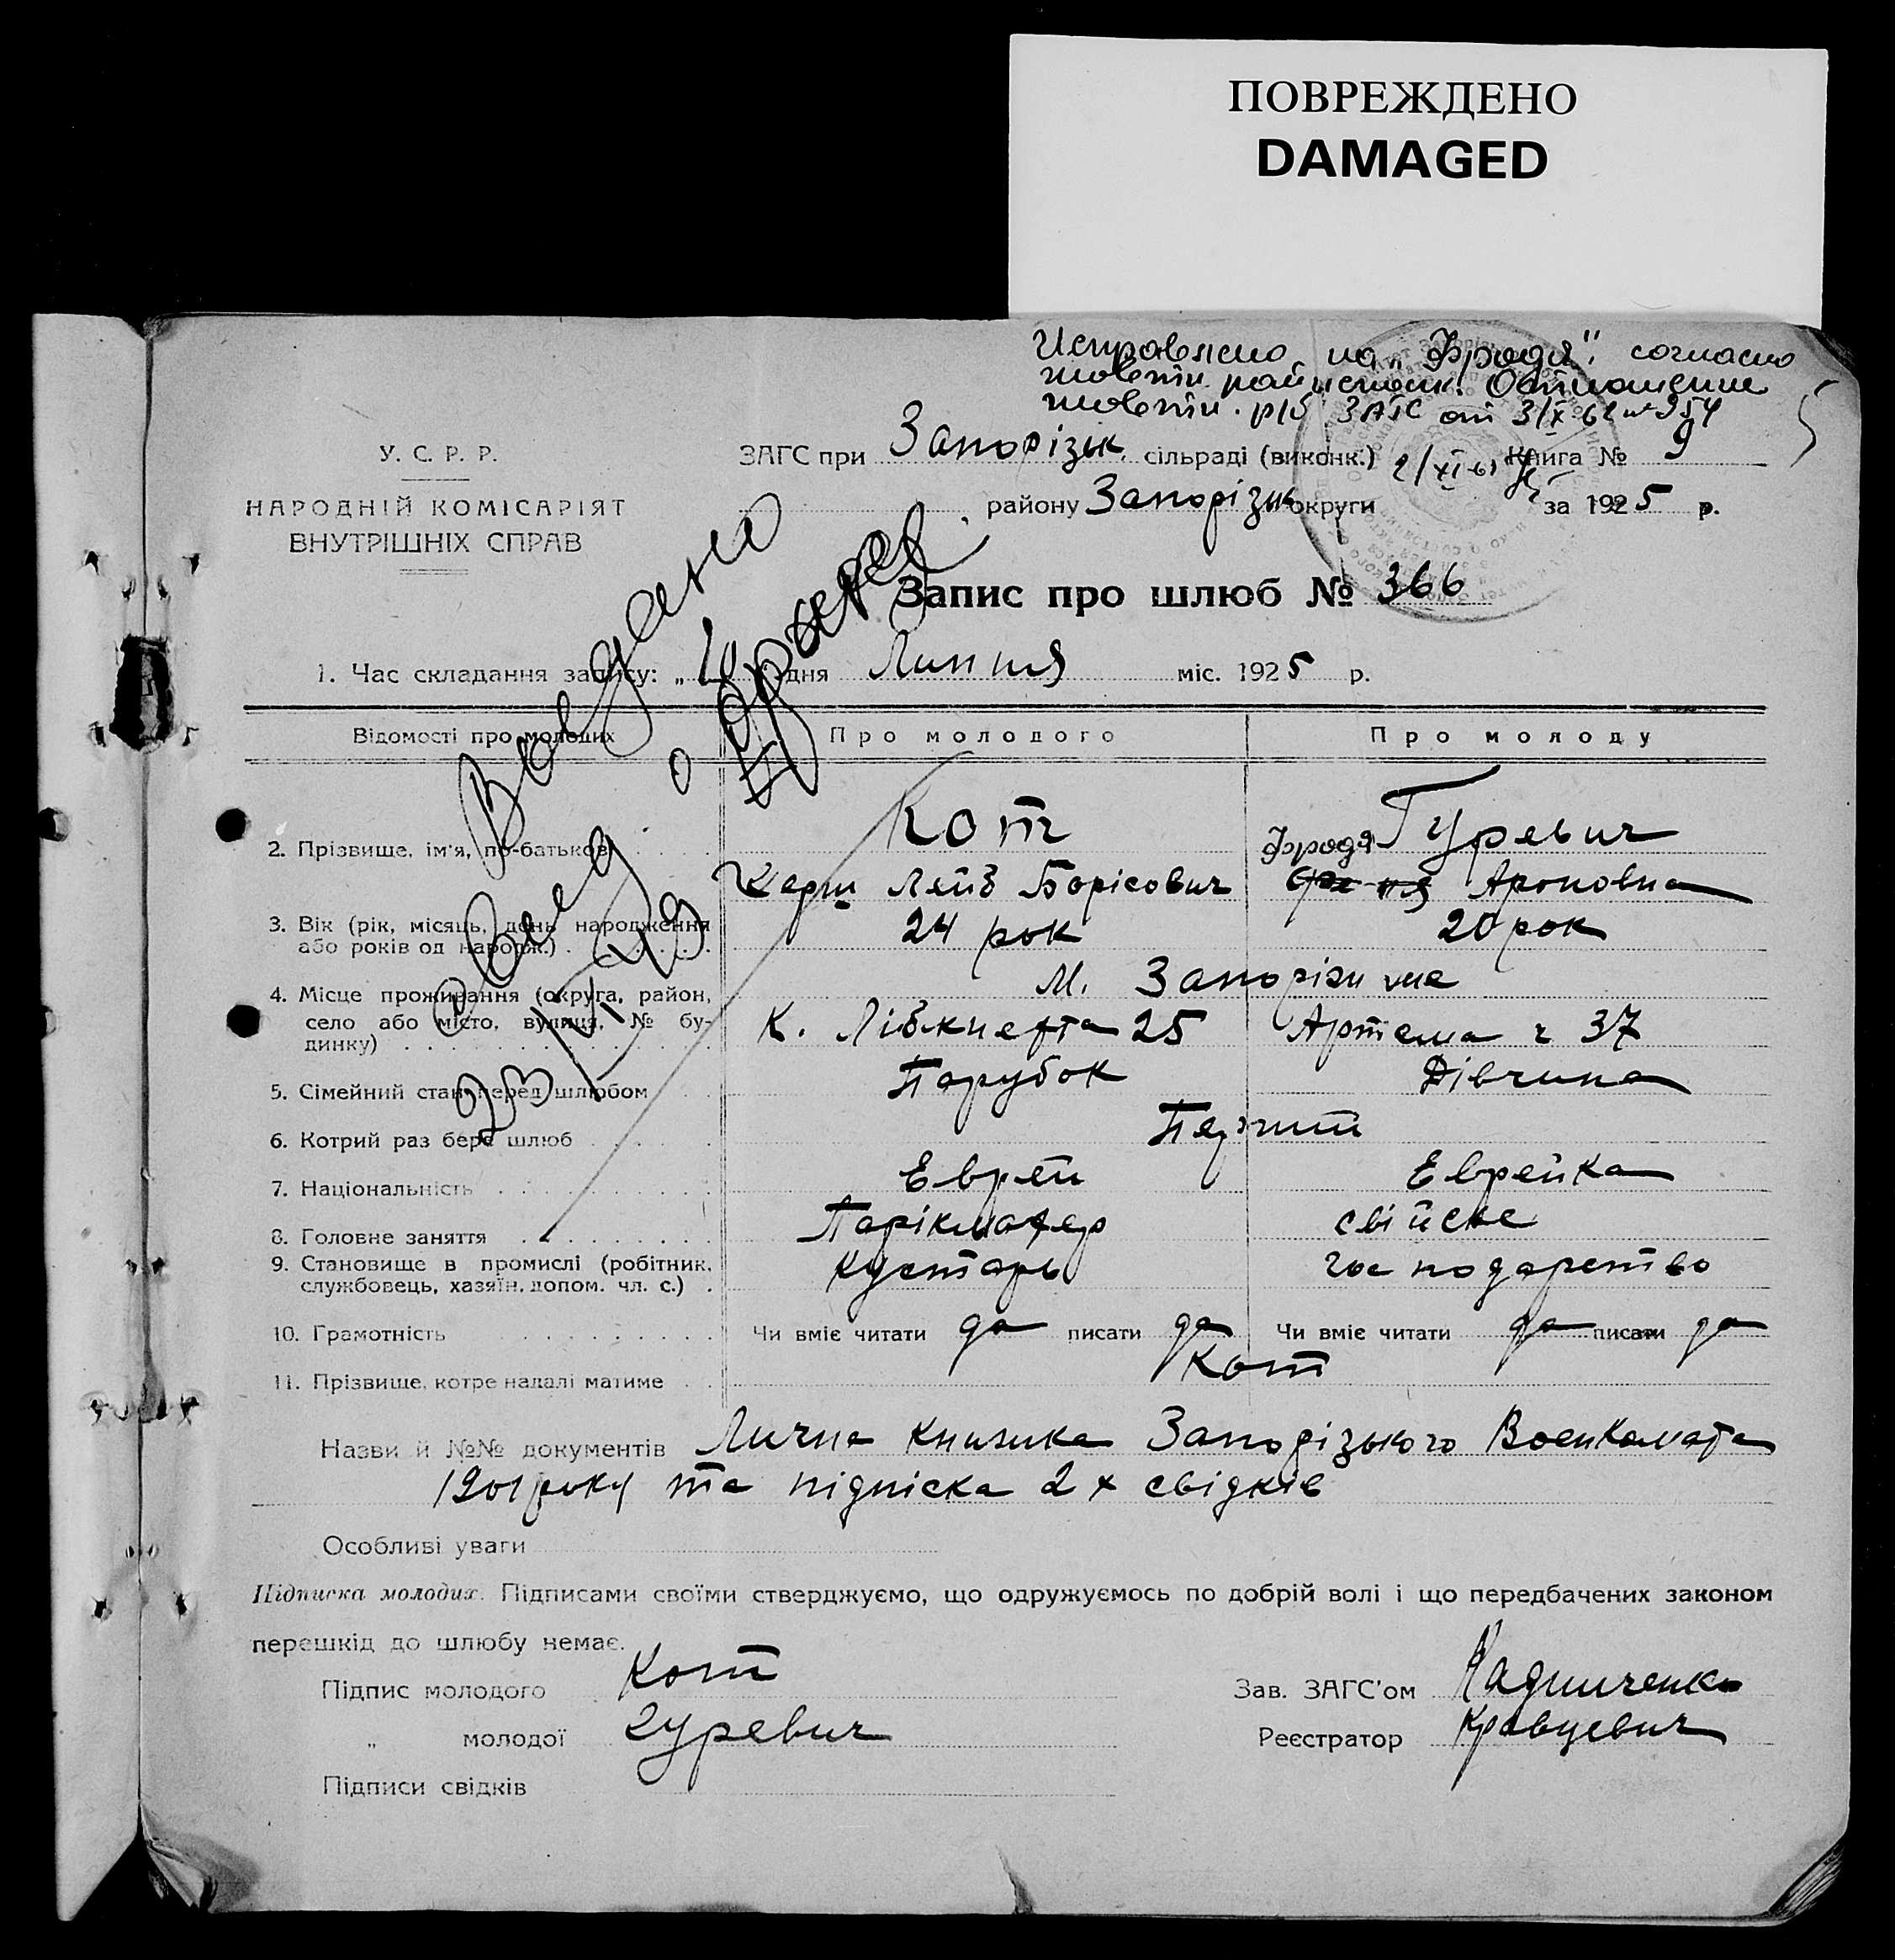 ПОВРЕЖДЕНО
DAMAGED
Исправлено на „Фродя" согласно
ЗАГС от 3/X 62
У. С. Р. Р.
НАРОДНІЙ КОМІСАРІЯТ
ВНУТРІШНІХ СПРАВ
ЗАГС при Запорізьк. сільраді (виконк.) Книга № 9
району Запорізьк округи за 1925 р.
Запис про шлюб № 366
1. Час складання запису: „ дня Липня міс. 1925 р.
Выдано
о браке
23
Відомості про молодих Про молодого Про молоду
2. Прізвище, ім'я, по-батькові Кот Гуревич
Фродя
Лейб Борісович Ароновна
3. Вік (рік, місяць, день народження
або років од народж.) 24 рок 20 рок
4. Місце проживання (округа, район,
село або місто, вулиця, № бу-
динку)
М. Запоріжжє
К. Лібкнехта 25 Артема ч 37
5. Сімейний стан перед шлюбом Парубок Дівчина
6. Котрий раз бере шлюб Перший
7. Національність Еврей Еврейка
8. Головне заняття Парікмахер свійске
9. Становище в промислі (робітник,
службовець, хазяїн, допом. чл. с.) Кустарь господарство
10. Грамотність Чи вміє читати да писати да Чи вміє читати да писати да
11. Прізвище, котре надалі матиме Кот
Назви й №№ документів Лична книжка Запорізького Военкомата
1901 року та підпіска 2х свідків
Особливі уваги
Підписка молодих. Підписами своїми стверджуємо, що одружуємось по добрій волі і що передбачених законом
перешкід до шлюбу немає.
Підпис молодого Кот Зав. ЗАГС'ом
„ молодої Гуревич Реєстратор Кравцевич
Підписи свідків